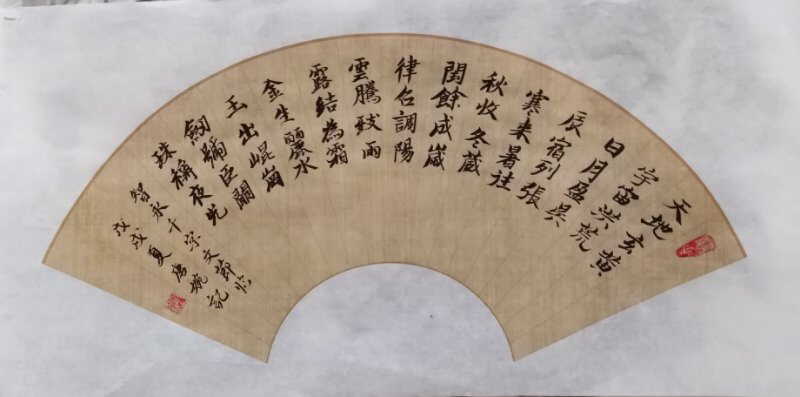 天地玄黄
宇宙洪荒
日月盈昃
辰宿列張
寒来暑往
秋收冬藏
閏餘成歲
律召調陽
雲騰致雨
露結為霜
金生麗水
玉出崐崗
劒號巨闕
珠稱夜光
智永千字文節臨
戊戌夏 婉記